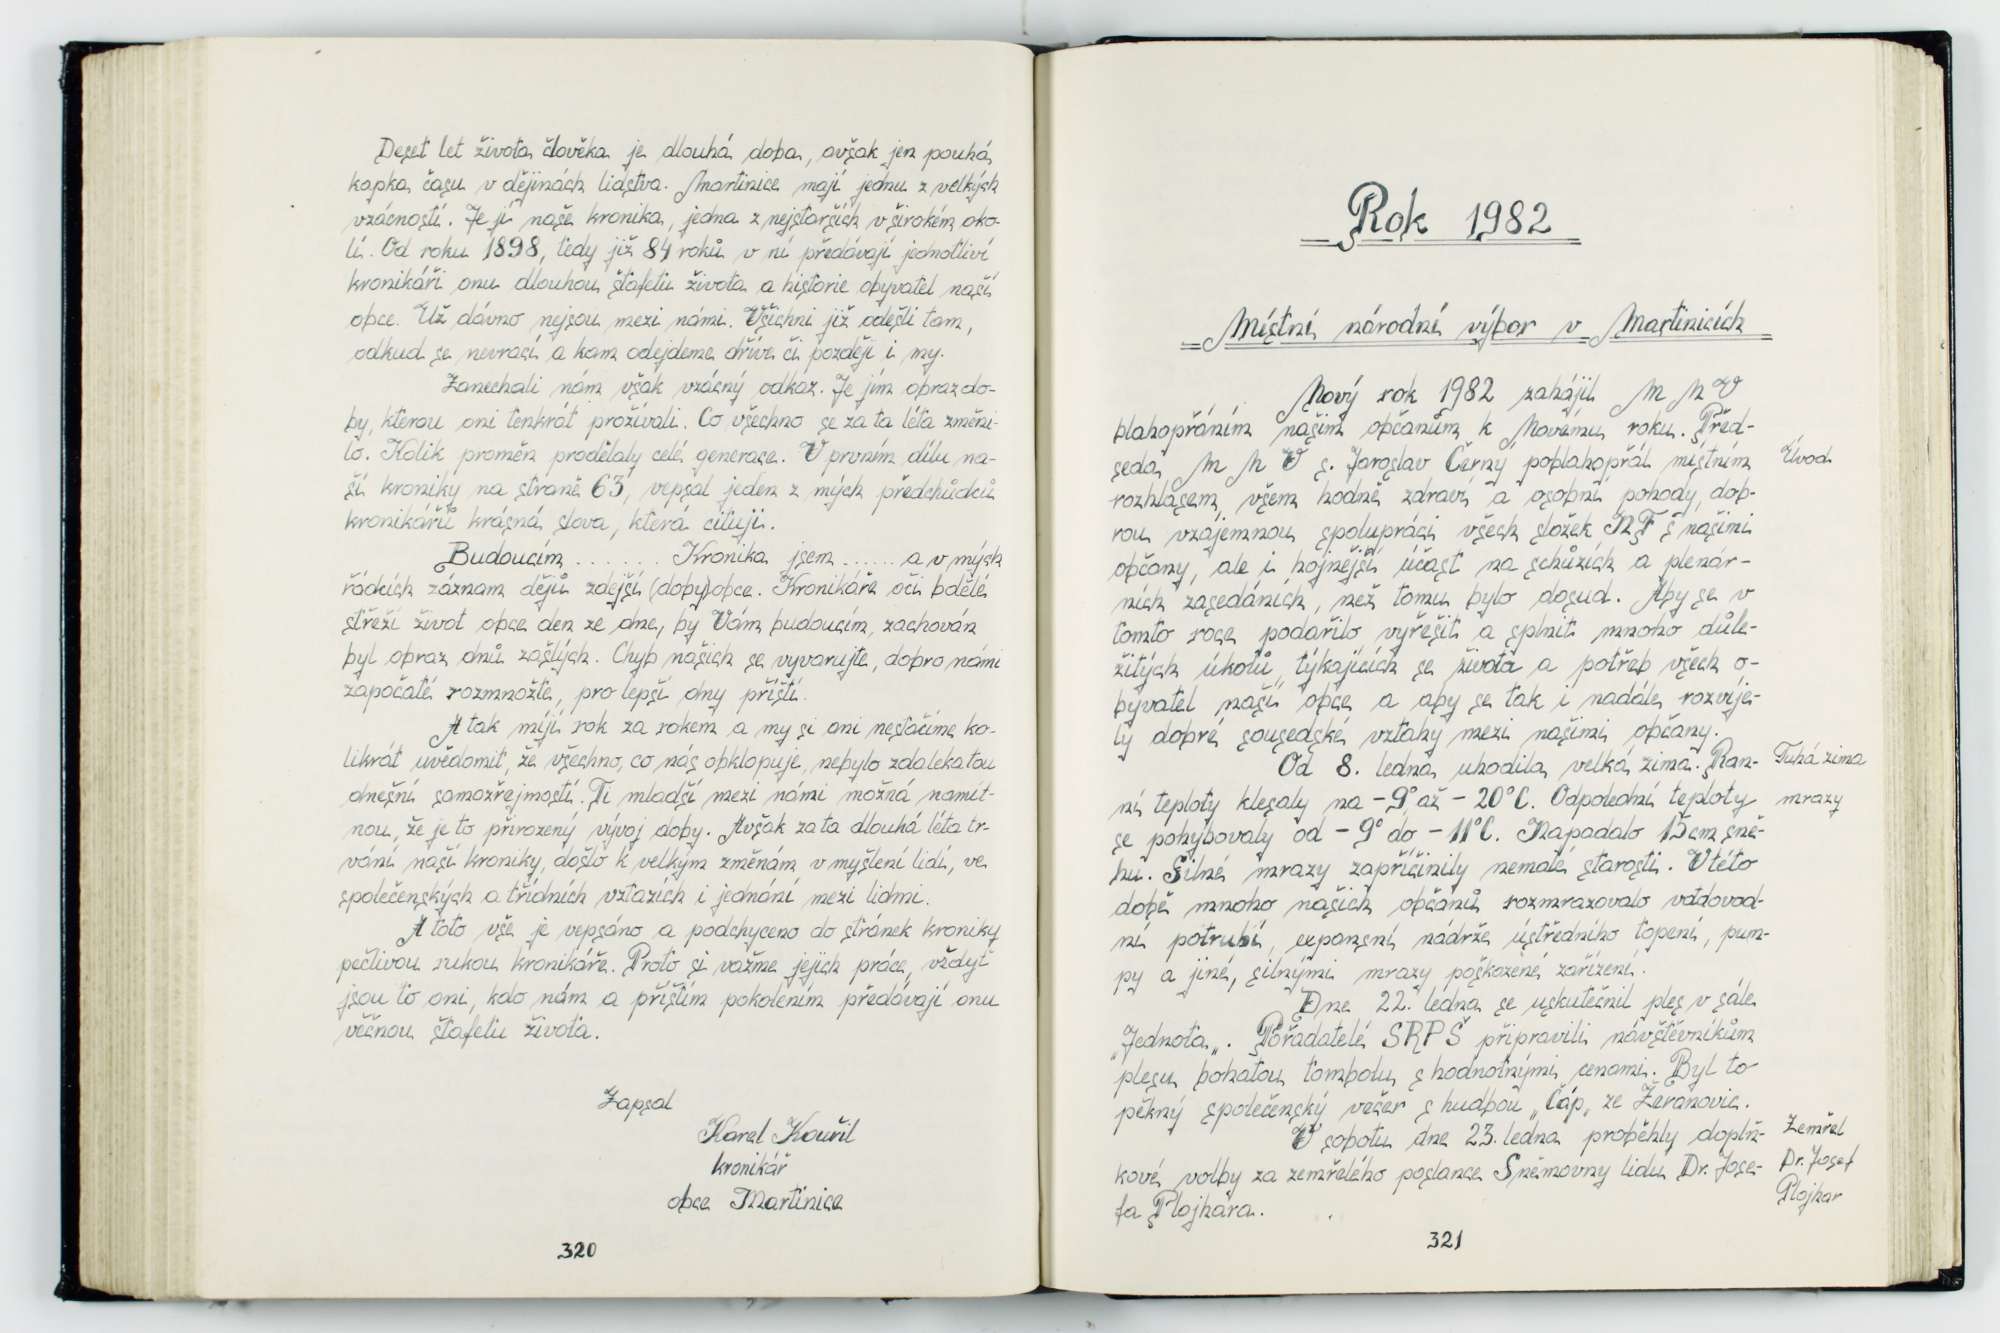 Deset let života člověka je dlouhá doba, avšak jen pouhá
kapka času v dějinách lidstva. Martinice mají jednu z velkých
vzácností. Je jí naše kronika, jedna z nejstarších v širokém oko-
lí. Od roku 1898, tedy již 84 roků v ní předávají jednotliví
kronikáři onu dlouhou štafetu života a historie obyvatel naší
obce. Už dávno nejsou mezi námi. Všichni již odešli tam,
odkud se nevrací a kam odejdeme dříve či později i my.
Zanechali nám však vzácný odkaz. Je jím obraz do-
by, kterou oni tenkrát prožívali. Co všechno se za ta léta změni-
lo. Kolik proměn prodělaly celé generace. V prvním dílu na-
ší kroniky na straně 63, vepsal jeden z mých předchůdců
kronikářů krásná slova, která cituji.
Budoucím ....... Kronika jsem ...... a v mých
řádcích záznam dějů zdejší (doby) obce. Kronikáře oči bdělé
střeží život obce den ze dne, by Vám budoucím, zachován
byl obraz dnů zašlých. Chyb našich se vyvarujte, dobro námi
započaté rozmnožte, pro lepší dny příští.
A tak míjí rok za rokem a my si ani nestačíme ko-
likrát uvědomit, že všechno, co nás obklopuje, nebylo zdaleka tou
dnešní samozřejmostí. Ti mladší mezi námi možná namít-
nou, že je to přirozený vývoj doby. Avšak za ta dlouhá léta tr-
vání naší kroniky, došlo k velkým změnám v myšlení lidí, ve
společenských a třídních vztazích i jednání mezi lidmi.
A toto vše je vepsáno a podchyceno do stránek kroniky
pečlivou rukou kronikáře. Proto si važme jejich práce, vždyť
jsou to oni, kdo nám a příštím pokolením předávají onu
věčnou štafetu života.
Zapsal
Karel Kouřil
kronikář
obce Martinice
320
Rok 1982
Místní národní výbor v Martinicích
Nový rok 1982 zahájil M N V
blahopřáním našim občanům k Novému roku. Před-
seda M N V s. Jaroslav Černý poblahopřál místním
rozhlasem, všem hodně zdraví a osobní pohody, dob-
rou vzájemnou spolupráci všech složek NF s našimi
občany, ale i hojnější účast na schůzích a plenár-
ních zasedáních, než tomu bylo dosud. Aby se v
tomto roce podařilo vyřešit a splnit mnoho důle-
žitých úkolů, týkajících se života a potřeb všech o-
byvatel naší obce a aby se tak i nadále rozvíje-
ly dobré sousedské vztahy mezi našimi občany.
Od 8. ledna uhodila velká zima. Ran-
ní teploty klesaly na -9° až -20°C. Odpolední teploty
se pohybovaly od -9° do -11°C. Napadalo 15 cm sně-
hu. Silné mrazy zapříčinily nemalé starosti. V této
době mnoho našich občanů rozmrazovalo vodovod-
ní potrubí, expansní nádrže ústředního topení, pum-
py a jiné, silnými mrazy poškozené zařízení.
Dne 22. ledna se uskutečnil ples v sále
„Jednota„. Pořadatelé SRPŠ připravili návštěvníkům
plesu bohatou tombolu s hodnotnými cenami. Byl to
pěkný společenský večer s hudbou „Čáp„ ze Žeranovic.
V sobotu dne 23. ledna proběhly doplň-
kové volby za zemřelého poslance Sněmovny lidu Dr. Jose-
fa Plojhara.
Úvod
Tuhá zima
mrazy
Zemřel
Dr. Josef
Plojhar
321